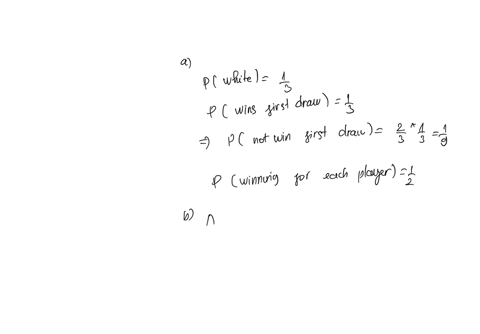 a)
P( white) = 1/3
P( wins first draw) = 1/3
=) P( not win first draw) = 2/3 * 1/3 = 1/9
P (winning for each player) = 1/2
b) n